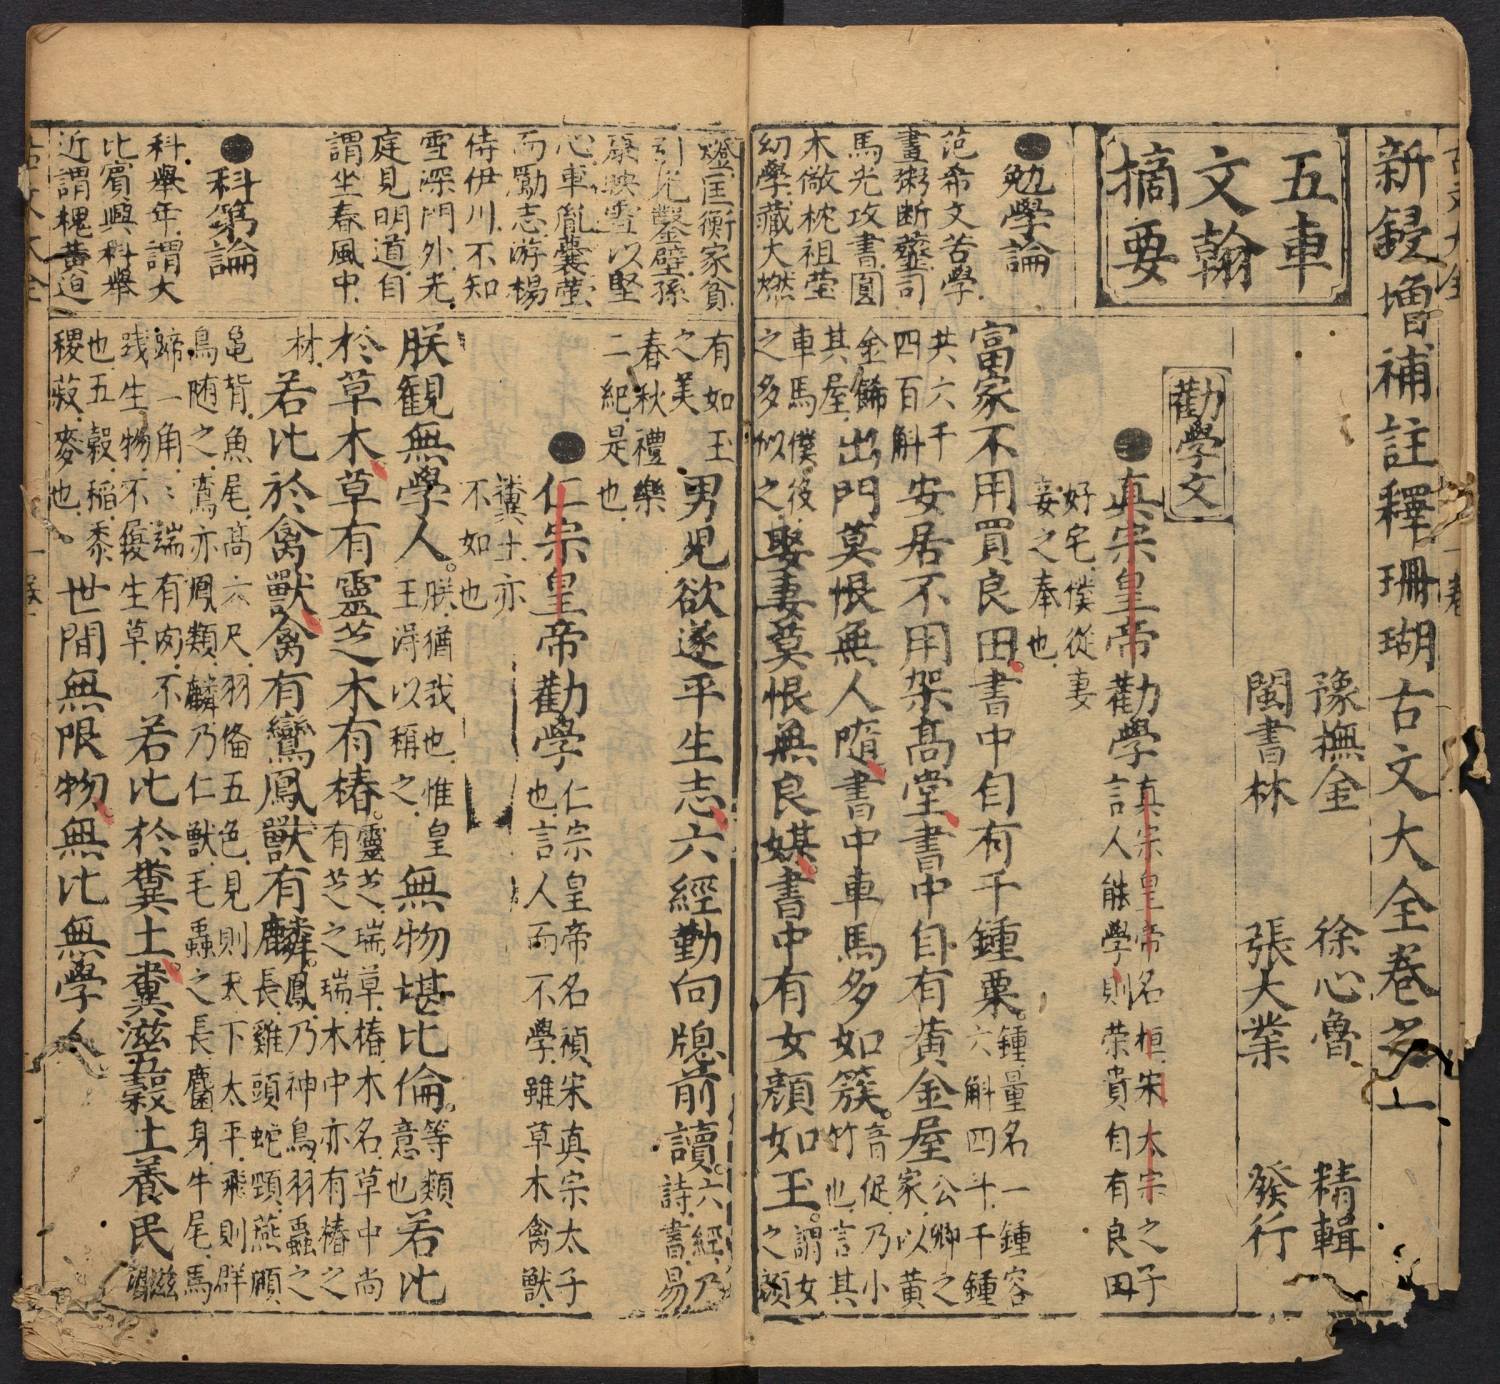 新鋟增補註釋珊瑚古文大全卷之一
豫撫金 徐心魯 精輯
閩書林 張大業 發行
五車
文翰
摘要
●勉學論
范希文苦學
畫粥断虀司
馬光攻書圓
木做枕祖瑩
幼學藏火燃
勸學文
●真宗皇帝勸學
真宗皇帝名桓宋太宗之子
言人能學則荣貴自有良田
好宅僕從妻
妾之奉也
富家不用買良田書中自有千鍾粟
鍾量名一鍾容
六斛四斗千鍾
共六千
四百斛
安居不用架高堂書中自有黃金屋
公卿之
家以黃
金餙
其屋
出門莫恨無人隨書中車馬多如簇
音促乃小
竹也言其
車馬僕後
之多似之
娶妻莫恨無良媒書中有女顏如玉
謂女
之顏
燈匡衡家貧
引光鑿壁孫
康映雪以堅
心車胤囊螢
而勵志游楊
侍伊川不知
雪深門外光
庭見明道自
謂坐春風中
●科第論
科舉年謂大
比賓興科舉
近謂槐黃迫
有如玉
之美
男兒欲遂平生志六經勤向牕前讀
六經乃
詩書易
春秋禮樂
二紀是也
●仁宗皇帝勸學
仁宗皇帝名禎宋真宗太子
也言人而不學雖草木禽獸
糞土亦
不如也
朕觀無學人
朕猶我也惟皇
王淂以稱之
無物堪比倫
等類
意也
若比
於草木草有靈芝木有椿
靈芝瑞草椿木名草中尚
有芝之瑞木中亦有椿之
材
若比於禽獸禽有鸞鳳獸有麟
鳳乃神鳥羽蟲之
長雞頭蛇頸燕頷
龜背魚尾高六尺羽俻五色見則天下太平飛則群
鳥随之鸞亦鳳類麟乃仁獸毛蟲之長麕身牛尾馬
蹄一角角端有肉不
践生物不履生草
若比於糞土糞滋五穀土養民
滋
潤
也五穀稻黍
稷菽麥也
世間無限物無比無學人